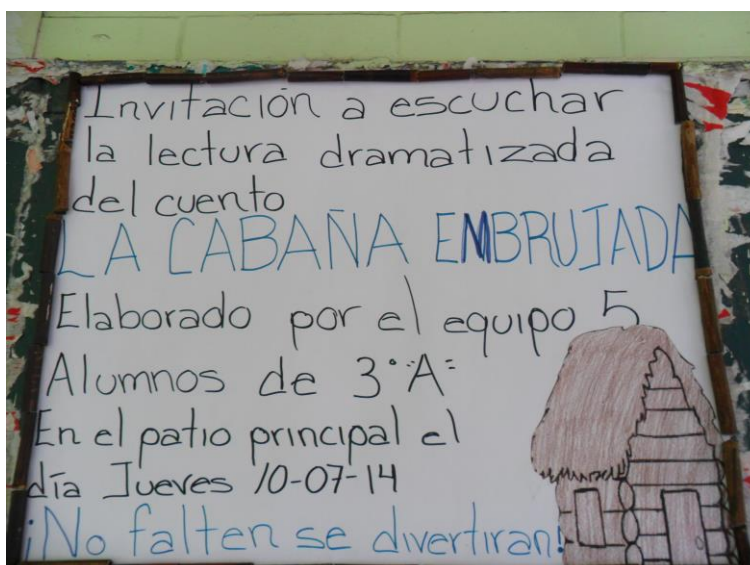 Invitación a escuchar
la lectura dramatizada
del cuento
LA CABAÑA EMBRUJADA
Elaborado por el equipo 5
Alumnos de 3° "A"
En el patio principal el
día Jueves 10-07-14
¡No falten se divertiran!